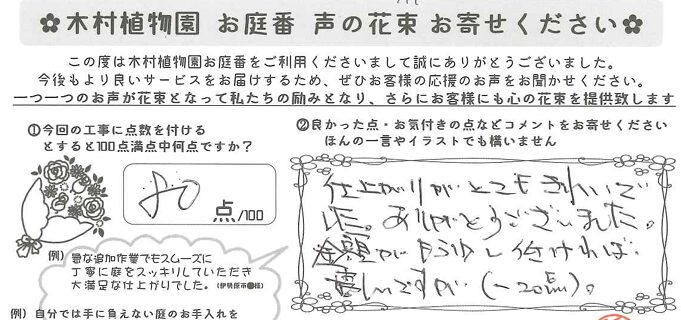 ✿木村植物園 お庭番 声の花束 お寄せください✿
この度は木村植物園お庭番をご利用くださいまして誠にありがとうございました。
今後もより良いサービスをお届けするため、ぜひお客様の応援のお声をお聞かせください。
一つ一つのお声が花束となって私たちの励みとなり、さらにお客様にも心の花束を提供致します
①今回の工事に点数を付ける
とすると100点満点中何点ですか?
80点/100
例)
急な追加作業でもスムーズに
丁寧に庭をスッキリしていただき
大満足な仕上がりでした。(伊勢原市 様)
例) 自分では手に負えない庭のお手入れを
②良かった点・お気付きの点などコメントをお寄せください
ほんの一言やイラストでも構いません
仕上がりがとてもきれいで
した。ありがとうございました。
金額がもう少し 付ければ
嬉しいですが(-20点)。